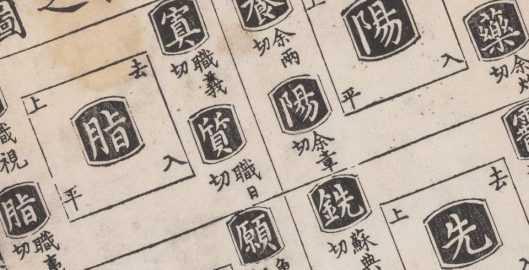 圖之
脂
上
去
入
平
寘
職義切
質
職日切
脂
職
切
視
陽
平
入
養
余兩切
陽
余章切
藥
余
切
先
上
去
銑
蘇典
切
願